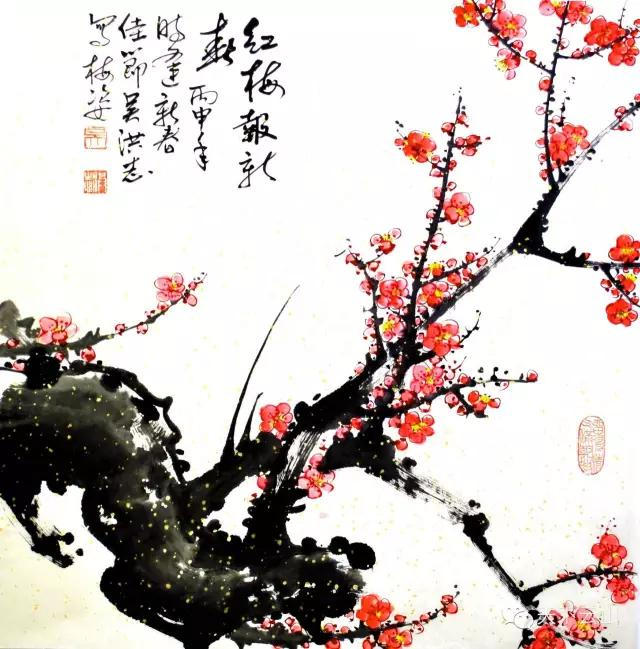 红梅報新
春丙申年
時逢新春
佳節吴洪志
写梅姿